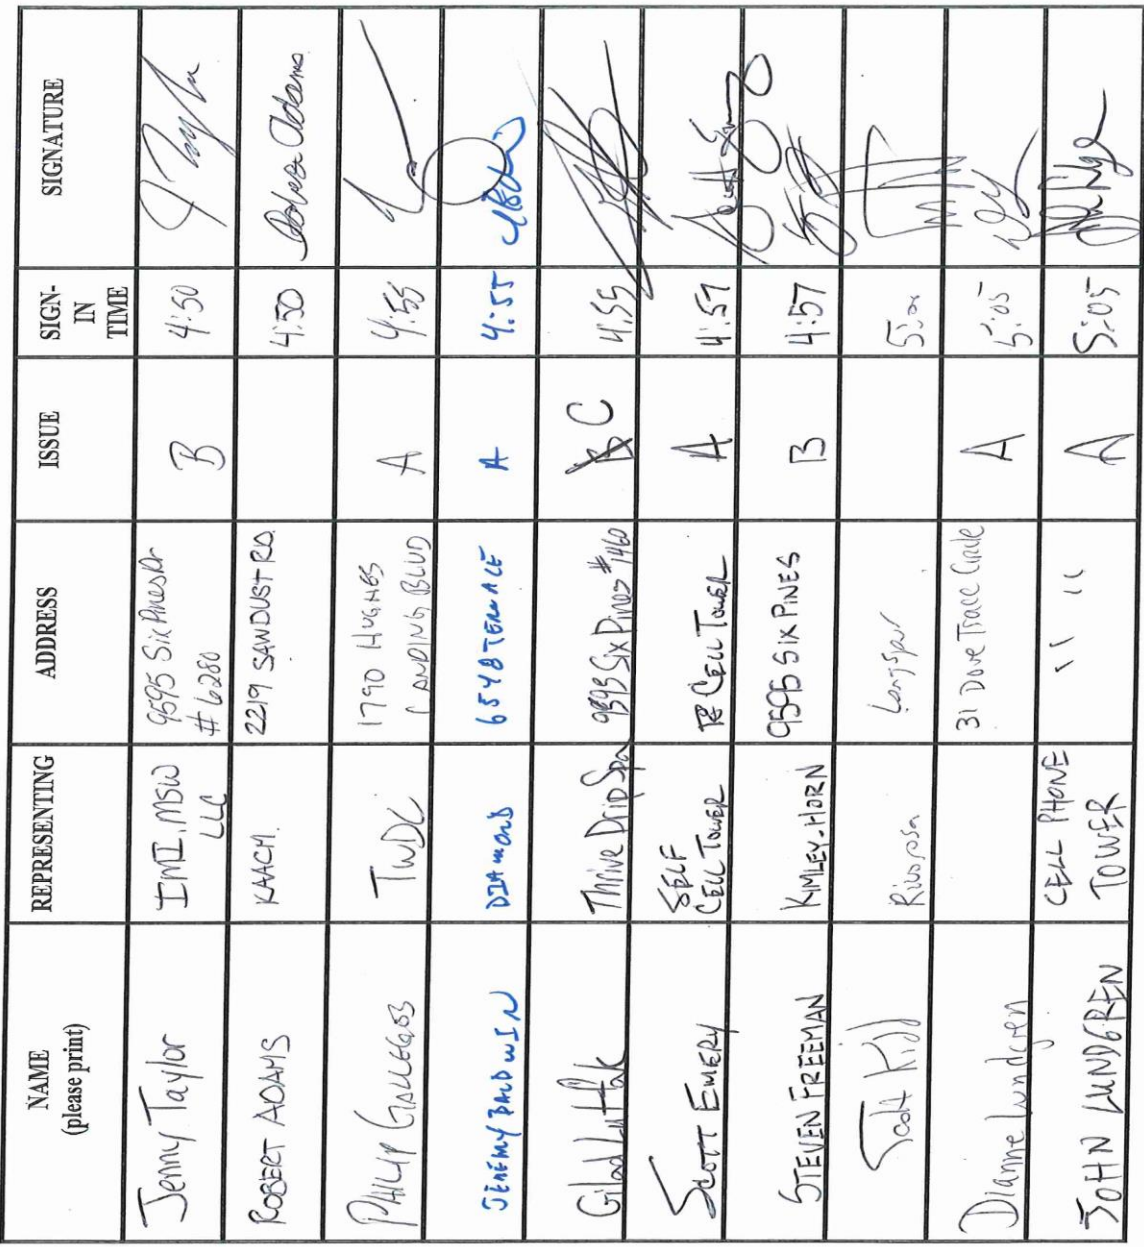 NAME
(please print)
REPRESENTING
ADDRESS
ISSUE
SIGN-
IN
TIME
SIGNATURE
Jenny Taylor
IMI, MSW
LLC
9595 Six Pines Dr
# 6280
B
4:50
ROBERT ADAMS
KAACM
2219 SAWDUST RD.
4:50
Robert Adams
PHILIP GALLEGOS
TWDC
1790 HUGHES
LANDING BLVD
A
4:55
JEREMY BALDWIN
DIAMOND
A
4:55
Thrive Drip Spa
9595 Six Pines #1460
C
4:55
SCOTT EMERY
SELF
CELL TOWER
CELL TOWER
A
4:57
STEVEN FREEMAN
KIMLEY-HORN
9595 SIX PINES
B
4:57
Scott Kidd
Longspur
Dianne Lundgren
31 Dove Trace Circle
A
5:05
JOHN LUNDGREN
CELL PHONE
TOWER
" "
A
5:05